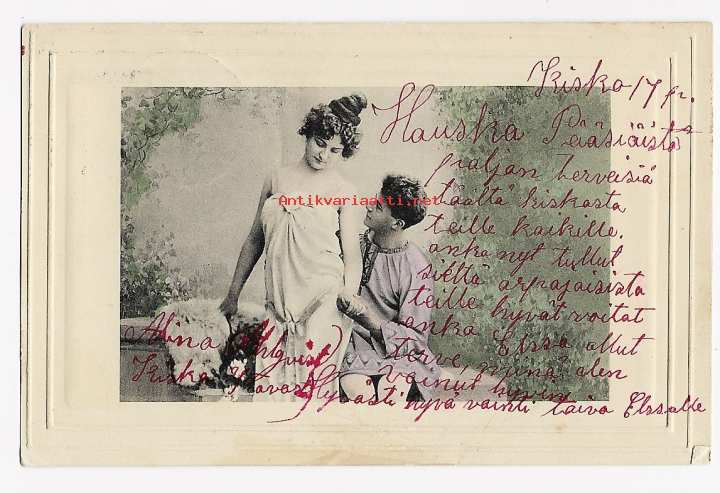 Kisko 17 pr.
Hauska Pääsiäistä
paljon terveisiä
täältä kiskosta
teille kaikille.
onko nyt tullut
sieltä arpajaisista
teille hyvät voitat
onko Elsa ollut
terve, minä olen
voinut hyvin
Hyvästi hyvä vointi toivo Elssalle
Alina Ahlqvist
Kisko
Antikvariaatti.net